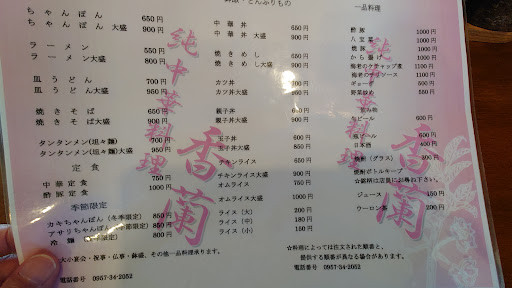 ちゃんぽん 650円
ちゃんぽん大盛 900円
ラーメン 550円
ラーメン大盛 800円
皿うどん 700円
皿うどん大盛 950円
焼きそば 650円
焼きそば大盛 900円
タンタンメン(坦々麺) 700円
タンタンメン(坦々麺)大盛 950円
定食
中華定食 750円
酢豚定食 1000円
季節限定
カキちゃんぽん(冬季限定) 850円
アサリちゃんぽん 850円
冷麺 800円
大小宴会・祝事・仏事・鉢盛、その他一品料理承ります。
電話番号 0957-34-2052
飯・どんぶりもの
中華丼 650円
中華丼大盛 900円
焼きめし
焼きめし大盛 900円
カツ丼 700円
カツ丼大盛
親子丼
親子丼大盛 900円
玉子丼
玉子丼大盛
チキンライス 650円
チキンライス大盛 900円
オムライス 750円
オムライス大盛
ライス(大) 200円
ライス(中) 180円
ライス(小) 150円
☆料理によっては注文された順番と、
提供する順番が異なる場合があります。
電話番号 0957-34-2052
一品料理
酢豚 1000円
八宝菜 1000円
焼豚 1000円
から揚げ
海老のケチャップ煮 1100円
海老のチリソース 1100円
ギョーザ
野菜炒め
飲み物
缶ビール
瓶ビール
日本酒 400円
焼酎(グラス) 300円
焼酎ボトルキープ
ジュース 150円
ウーロン茶 200円
純中華料理
香蘭
純中華料理
香蘭